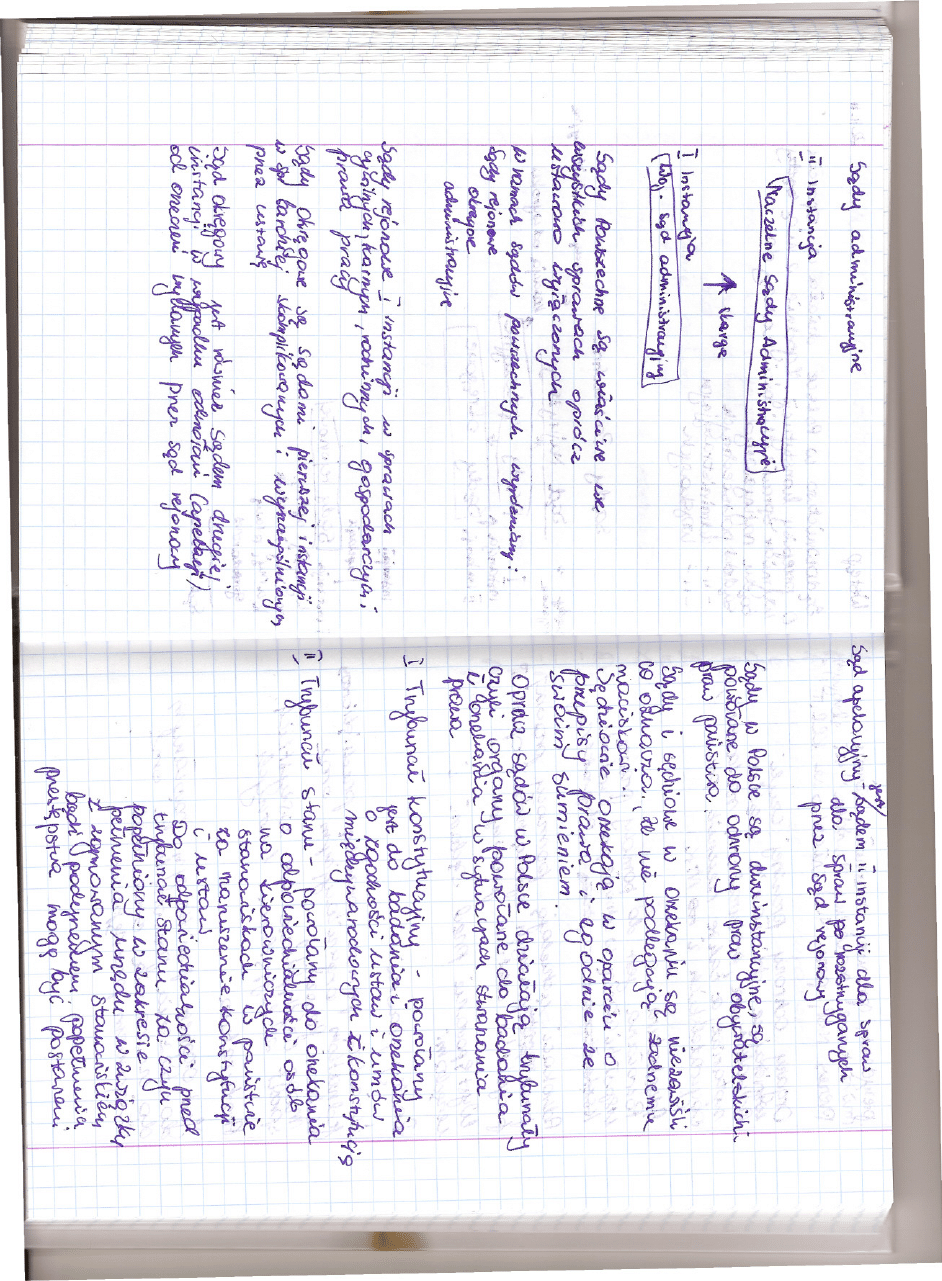 Sądy administracyjne
II Instancja
Naczelne Sądy Administracyjne
↑ skarga
I Instancja
Woj. sąd administracyjny
Sądy Powszechne są właściwe we
wszystkich sprawach oprócz
ustawowo wyłączonych
W ramach sądów powszechnych wyróżniamy:
sądy rejonowe
okręgowe
administracyjne
Sądy rejonowe I instancji w sprawach
cywilnych, karnych, rodzinnych, gospodarczych i
prawa pracy
Sądy okręgowe są sądami pierwszej instancji
w spr bardziej skomplikowanych i wyszczególnionych
przez ustawę
Sąd okręgowy jest również sądem drugiej
instancji w wypadku odwołań (apelacji)
od orzeczeń wydanych przez sąd rejonowy
Sąd apelacyjny - jest sądem II instancji dla spraw
dla spraw po rozstrzyganych
przez sąd rejonowy
Sądy w Polsce są dwuinstancyjne, są
powołane do ochrony praw obywatelskich i
praw państwa.
Sądy i sędziowe w orzekaniu są niezawiśli
co oznacza, że nie podlegają żadnemu
naciskowi.
Sędziowie orzekają w oparciu o
przepisy prawa i zgodnie ze
swoim sumieniem.
Oprócz sądów w Polsce działają trybunały
czyli organy powołane do badania
i orzekania w sytuacjach stwarzania
prawa
I Trybunał konstytucyjny - powołany
jest do badania i orzekania
o zgodności ustaw i umów
międzynarodowych z konstytucją
II Trybunał stanu - powołany do orzekania
o odpowiedzialności osób
na kierowniczych
stanowiskach w państwie
za naruszenie konstytucji
i ustaw
Do odpowiedzialności przed
trybunał stanu za czyn
popełniony w zakresie
pełnienia urzędu w związku
z zajmowanym stanowiskiem
bądź podejrzeniem popełnienia
przestępstwa mogą być postawieni